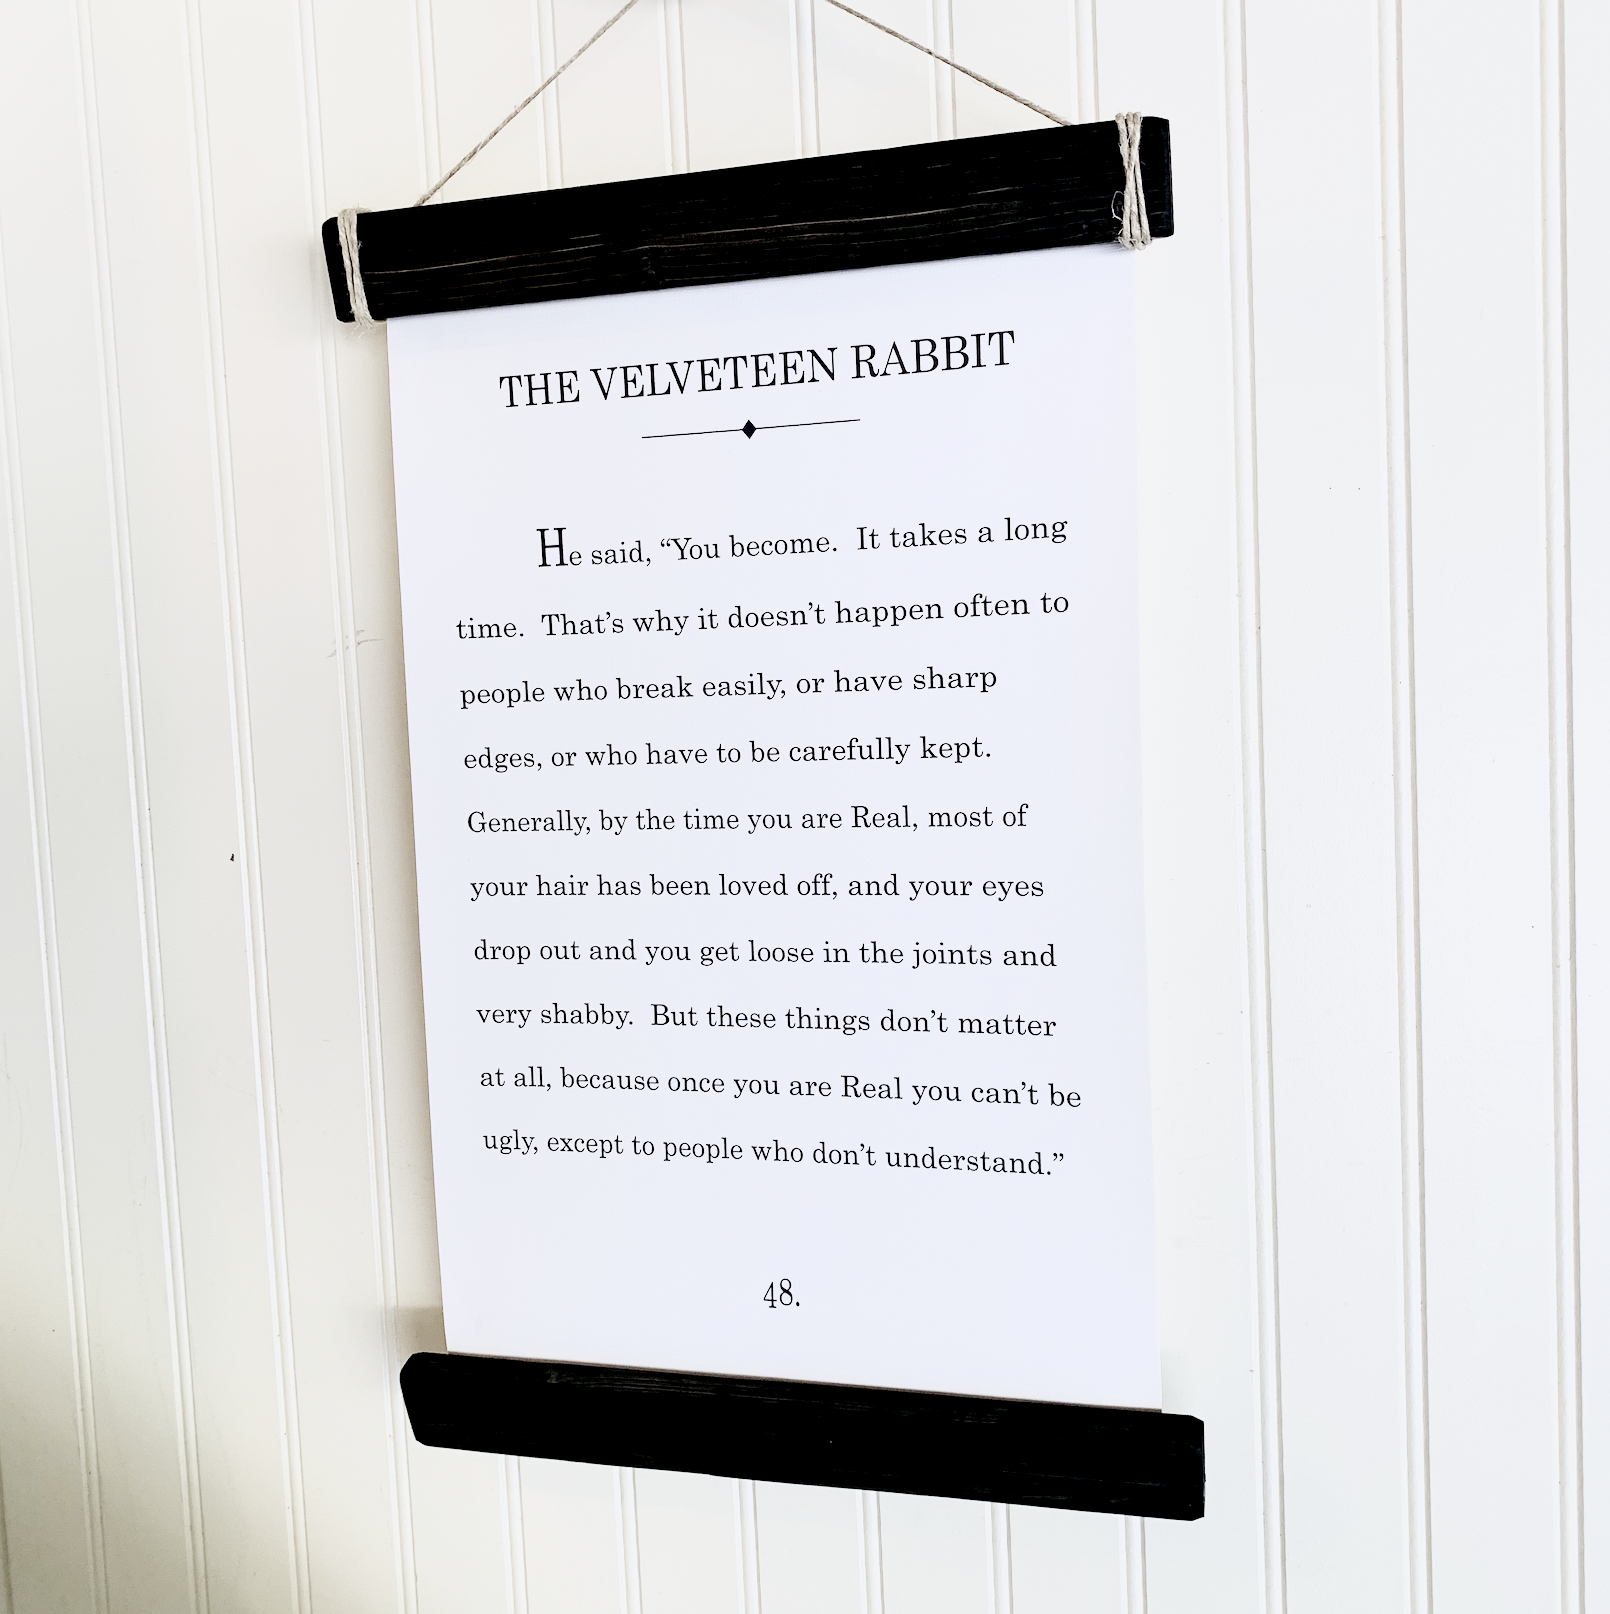 THE VELVETEEN RABBIT
He said, “You become.  It takes a long
time.  That’s why it doesn’t happen often to
people who break easily, or have sharp
edges, or who have to be carefully kept.
Generally, by the time you are Real, most of
your hair has been loved off, and your eyes
drop out and you get loose in the joints and
very shabby.  But these things don’t matter
at all, because once you are Real you can’t be
ugly, except to people who don’t understand.”
48.